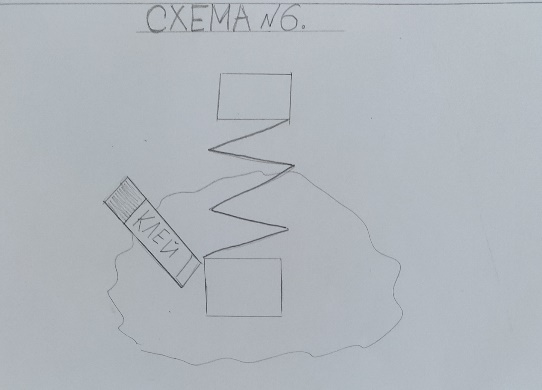 СХЕМА №6.
КЛЕЙ